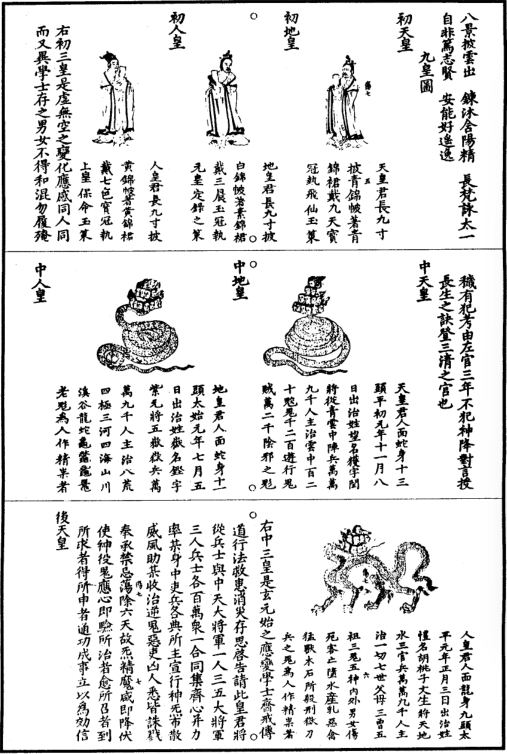 八景披雲出　鍊沐含陽精　長梵詠太一
自非篤志賢　安能好遙逸
九皇圖
初天皇
天皇君長九寸
披青錦帔著青
錦裙戴九天寶
冠執飛仙玉策
初地皇
地皇君長九寸披
白錦帔著素錦裙
戴三晨玉冠執
元皇定錄之策
初人皇
人皇君長九寸披
黃錦帔著黃錦裙
戴七色寶冠執
上皇保命玉策
右初三皇是虛無空之變化應感同人同
而又異學士存之男女不得和混勿履殗
穢有犯考由左官三年不犯神降對言授
長生之訣登三清之官也
中天皇
天皇君人面蛇身十三
頭平初元年十一月八
日出治姓望名獲字閏
將從青雲中陣兵萬萬
九千人主治雲中百二
十愸鬼千二百遊行鬼
賊萬二千陰邪之鬼
中地皇
地皇君人面蛇身十一
頭太始元年七月五
日出治姓嶽名鏗字
紫元將五嶽嶽兵萬
萬九千人主治八荒
四極三河四海山川
溪谷龍蛇龜鱉黿鼍
老鬼為人作精祟者
中人皇
人皇君人面龍身九頭太
平元年正月三日出治姓
愷名胡桃字文生將天地
水三官兵萬萬九千人主
治一切七世父母三曹五
祖三鬼五神内外男女傷
死客亡墮水產乳惡禽
猛獸木石所殺刑獄刀
兵之鬼為人作精祟者
右中三皇是玄元始之應變學士齋戒傳
道行法救患消災存思啓告請此皇君將
從兵士與中天大將軍一人三五大將軍
三人兵士各百萬衆一合同集齊心并力
率某身中吏兵各典所主宣行神炁布散
威風助某收治逆鬼惡吏凶人悉皆誅戮
奉承禁忌蕩除六天故炁精魔咸即降伏
使神役鬼應心即驗所治者愈所召者到
所求者得所申者通功成事立以為効信
後天皇